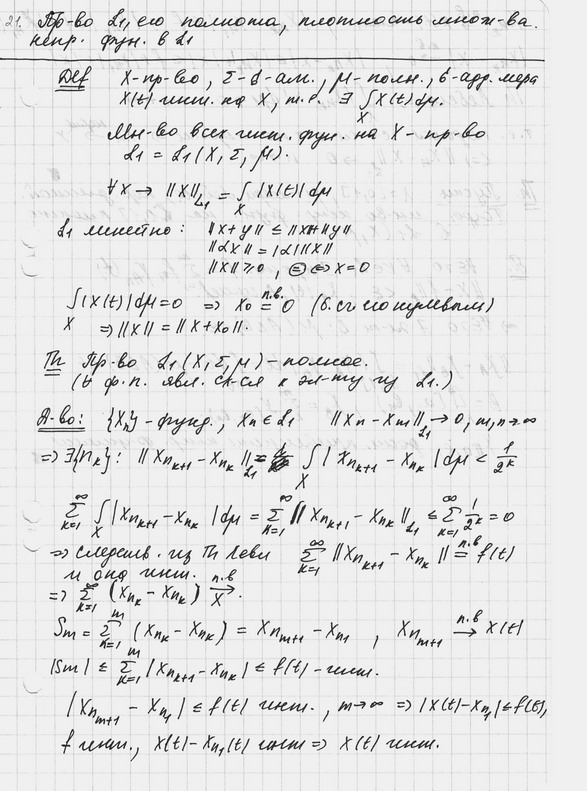 21. Пр-во L₁, его полнота, плотность множ-ва
непр. фун. в L₁
Def X-пр-во, Σ-σ-алг., μ-полн., σ-адд. мера
X(t) инт. на X, т.е. ∃ ∫_X X(t)dμ.
Мн-во всех инт. фун. на X - пр-во
L₁ = L₁(X, Σ, μ).
∀x → ||X||_{L₁} = ∫_X |X(t)|dμ
L₁ линейно: ||x+y|| ≤ ||x||+||y||
||αx|| = |α| ||x||
||x|| ≥ 0, ⊜ ⇔ x=0
∫_X |X(t)|dμ=0 ⇒ X₀ =^{п.в.} 0 (б. сч его нулевым)
⇒ ||X|| = ||X+X₀||.
Th Пр-во L₁(X, Σ, μ) - полное.
(∀ ф.п. явл. сх-ся к эл-ту из L₁.)
Д-во: {Xₙ} - фунд., Xₙ ∈ L₁ ||Xₙ - Xₘ||_{L₁} → 0, m,n→∞
⇒ ∃{n_k}: ||X_{n_{k+1}} - X_{n_k}||_{L₁} = ∫_X |X_{n_{k+1}} - X_{n_k}|dμ < 1/2^k
∑_{k=1}^∞ ∫_X |X_{n_{k+1}} - X_{n_k}|dμ = ∑_{k=1}^∞ ||X_{n_{k+1}} - X_{n_k}||_{L₁} ≤ ∑_{k=1}^∞ 1/2^k = 0
⇒ следств. из Th Леви ∑_{k=1}^∞ ||X_{n_{k+1}} - X_{n_k}|| =^{п.в} f(t)
и она инт.
⇒ ∑_{k=1}^∞ (X_{n_k} - X_{n_k}) →^{п.в}_X.
Sₘ = ∑_{k=1}^m (X_{n_k} - X_{n_k}) = X_{n_{m+1}} - X_{n_1}, X_{n_{m+1}} →^{п.в} X(t)
|Sₘ| ≤ ∑_{k=1}^m |X_{n_{k+1}} - X_{n_k}| ≤ f(t) - инт.
|X_{n_{m+1}} - X_{n_1}| ≤ f(t) инт., m→∞ ⇒ |X(t) - X_{n_1}| ≤ f(t),
f инт., X(t) - X_{n_1}(t) инт ⇒ X(t) инт.